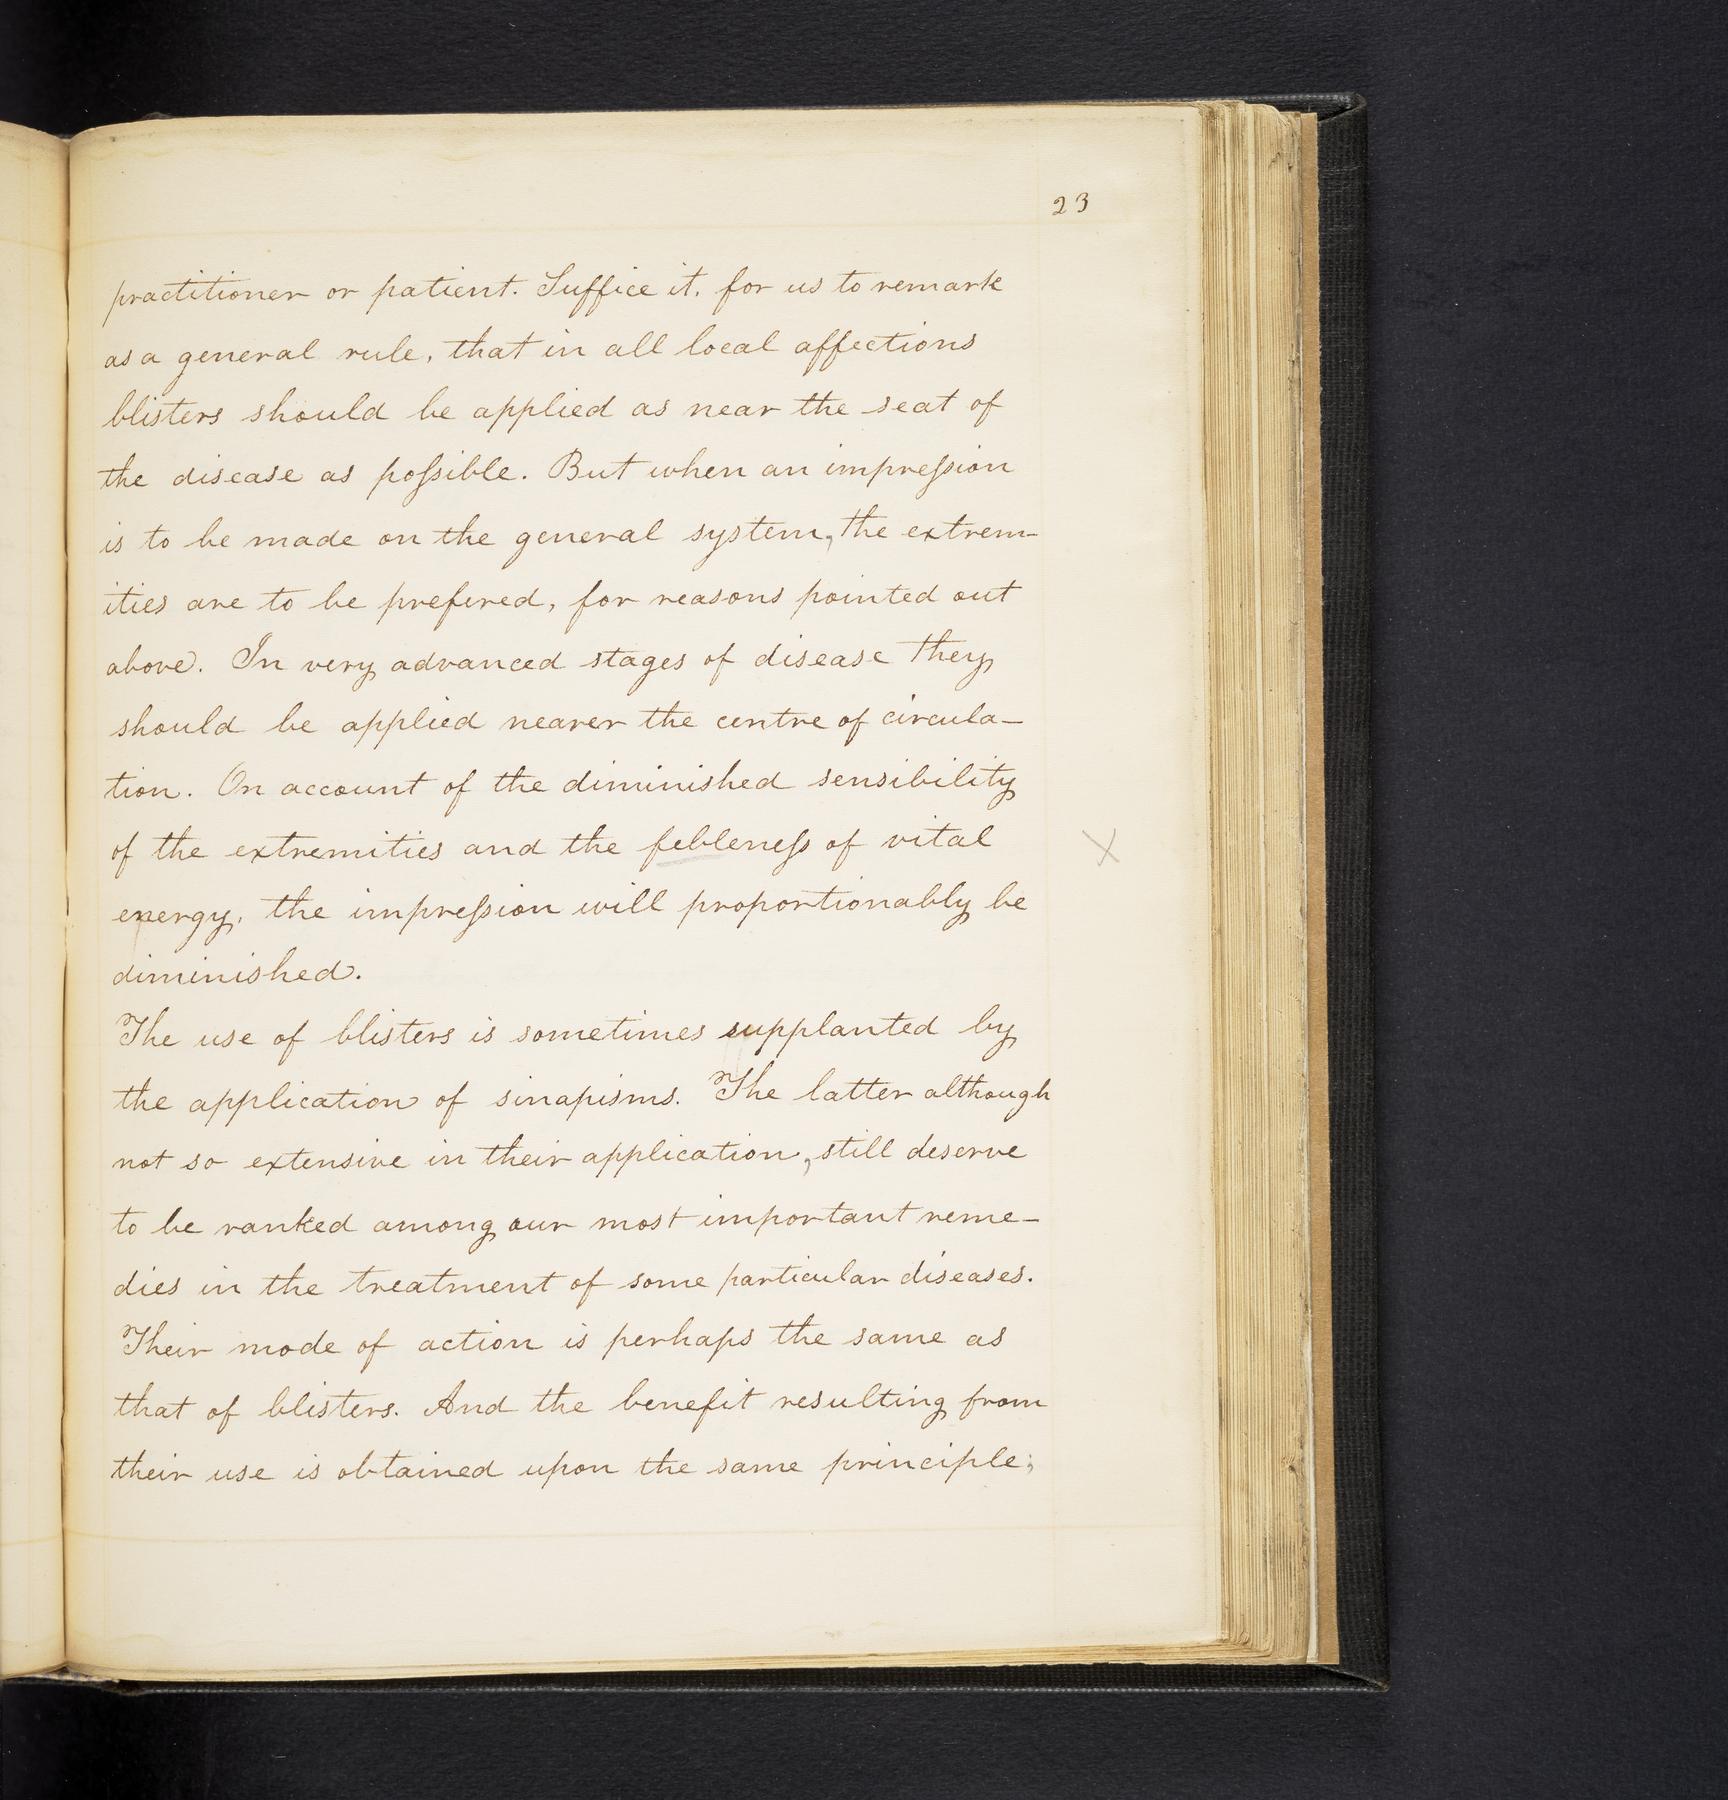 23
practitioner or patient. Suffice it, for us to remark
as a general rule, that in all local affections
blisters should be applied as near the seat of
the disease as poſsible. But when an impreſsion
is to be made on the general system, the extrem-
ities are to be prefered, for reasons pointed out
above. In very advanced stages of disease they
should be applied nearer the centre of circula-
tion. On account of the diminished sensibility
of the extremities and the febleneſs of vital
X
energy, the impreſsion will proportionably be
diminished.
The use of blisters is sometimes supplanted by
the application of sinapisms. The latter although
not so extensive in their application, still deserve
to be ranked among our most important reme-
dies in the treatment of some particular diseases.
Their mode of action is perhaps the same as
that of blisters. And the benefit resulting from
their use is obtained upon the same principle;